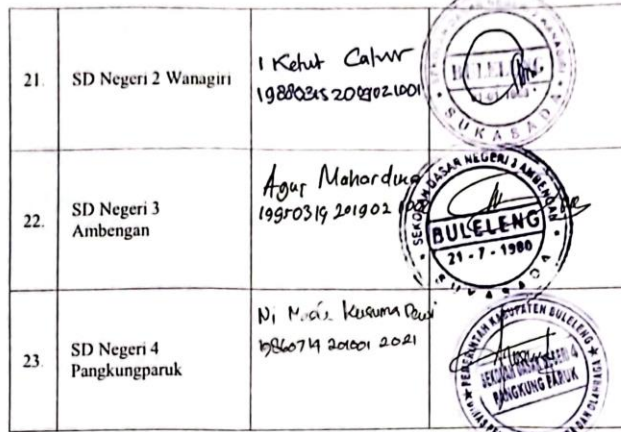 21. SD Negeri 2 Wanagiri
I Ketut Catur
BULELENG
SUKASADA
22. SD Negeri 3
Ambengan
Agus Mahardika
19950319 201902
SEKOLAH DASAR NEGERI 3 AMBENGAN
BULELENG
21 - 7 - 1980
SUKASADA
23. SD Negeri 4
Pangkungparuk
Ni Made Kusuma Dewi
PEMERINTAH KABUPATEN BULELENG
SEKOLAH DASAR NEGERI 4
PANGKUNG PARUK